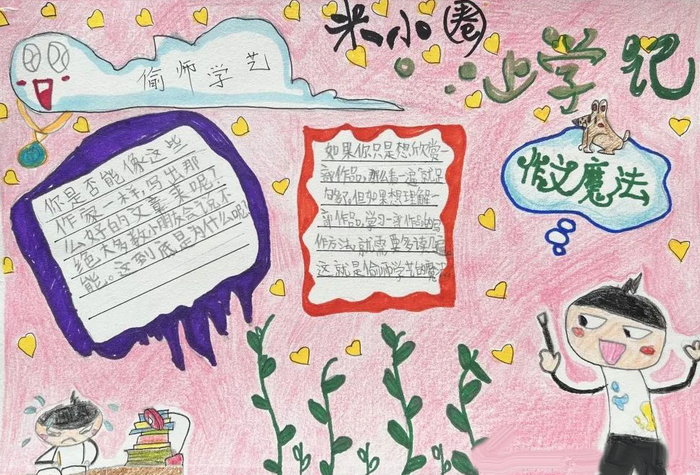 米小圈
上学记
偷师学艺
你是否能像这些
作家一样,写出那
么好的文章来呢?
绝大多数小朋友会说不
能。这到底是为什么呢?
如果你只是想欣赏
一部作品,那么看一遍就足
够了,但如果想理解一
部作品,学习一部作品的写
作方法,就需要多读几遍
这就是偷师学艺的魔法
作文魔法